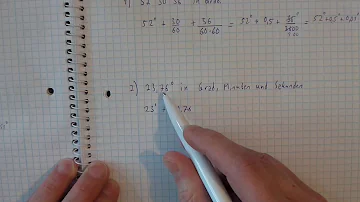 1) 52° 30' 36" in Grad
52° + 30/60 + 36/60·60 = 52° + 0,5 + 36°/3600 = 52° + 0,5° + 0,01°
2) 23,76° in Grad, Minuten und Sekunden
23° + 0,76